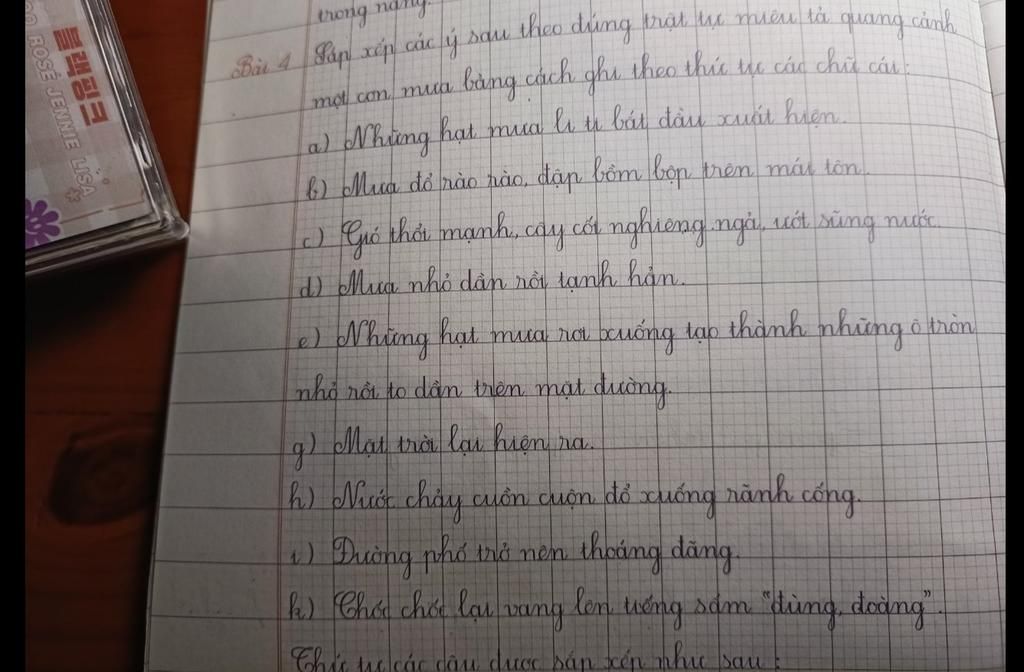 블랙핑크
ROSÉ JENNIE LISA
trong nắng.
Bài 4 Sắp xếp các ý sau theo đúng trật tự miêu tả quang cảnh
một cơn mưa bằng cách ghi theo thứ tự các chữ cái:
a) Những hạt mưa li ti bắt đầu xuất hiện.
b) Mưa đổ rào rào, đập bồm bộp trên mái tôn.
c) Gió thổi mạnh, cây cối nghiêng ngả, ướt sũng nước.
d) Mưa nhỏ dần rồi tạnh hẳn.
e) Những hạt mưa rơi xuống tạo thành những ô tròn
nhỏ rồi to dần trên mặt đường.
g) Mặt trời lại hiện ra.
h) Nước chảy cuồn cuộn đổ xuống rãnh cống.
i) Đường phố trở nên thoáng đãng.
k) Chốc chốc lại vang lên tiếng sấm "đùng, đoàng".
Thứ tự các câu được sắp xếp như sau: